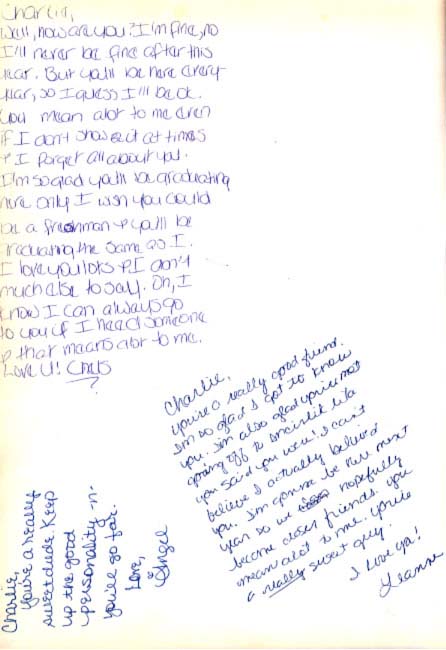 Charlie,
Well, how are you? I'm fine, no
I'll never be fine after this
year. But ya'll be here every
year, so I guess I'll be o.k.
You mean alot to me even
if I don't show it at times
& I forget all about you.
I'm so glad ya'll be graduating
here only I wish you could
be a freshman & ya'll be
graduating the same as I.
I love you lots & I don't
much else to say. Oh, I
know I can always go
to you if I need someone
& that means alot to me.
Love U! Chris
?
Charlie,
you're a really good friend.
I'm so glad I got to know
you. I'm also glad you're not
going off to
you said you were! I can't
believe I actually believed
you. I'm gonna be here next
year so we hopefully
become closer friends. you
mean alot to me. you're
a really sweet guy.
I love ya!
Leanne
Charlie,
you're a really
sweet dude. Keep
up the good
personality -n-
you'll go far.
Love,
Angel